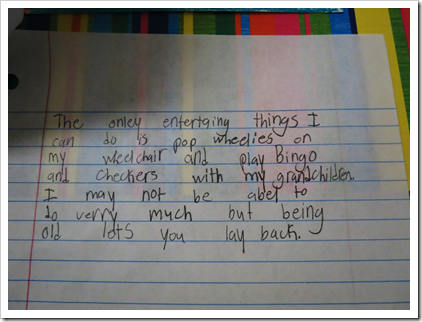 The onley entertaing things I
can do is pop wheelies on
my wheelchair and play Bingo
and Checkers with my grandchildren.
I may not be abel to
do verry much but being
old lets you lay back.